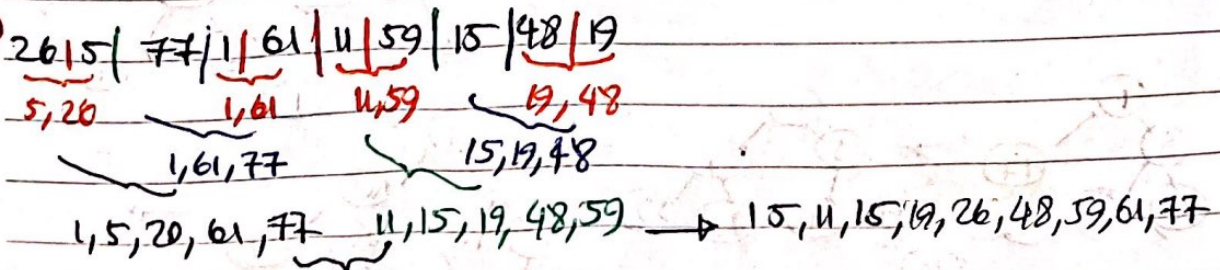 26|5| 77|1|61|11|59|15|48|19
5,20 1,61 11,59 19,48
1,61,77 15,19,48
1,5,20,61,77 11,15,19,48,59 → 15,11,15,19,26,48,59,61,77